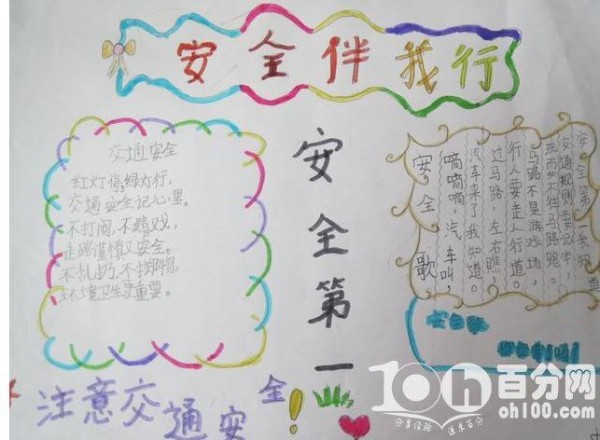 安全伴我行
交通安全
红灯停,绿灯行,
交通安全记心里。
不打闹,不嬉戏,
走路谨慎又安全。
不乱扔,不
环境卫生更重要。
安全第一
安全歌
嘀嘀嘀,汽车叫,
汽车来了我知道。
过马路,左右瞧,
行人要走人行道。
马路不是游戏场,
交通规则要记牢,
安全第一
注意交通安全!
百分网
oh100.com